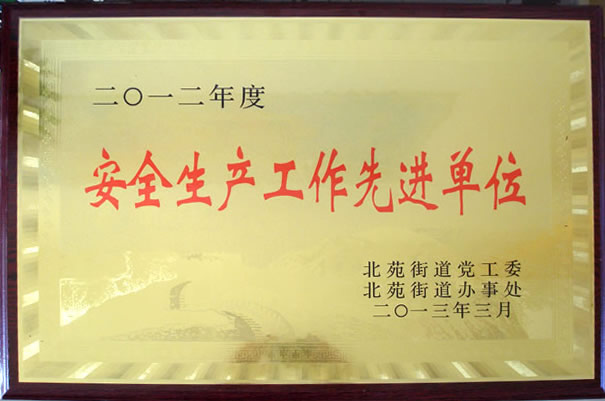 二〇一二年度
安全生产工作先进单位
北苑街道党工委
北苑街道办事处
二〇一三年三月